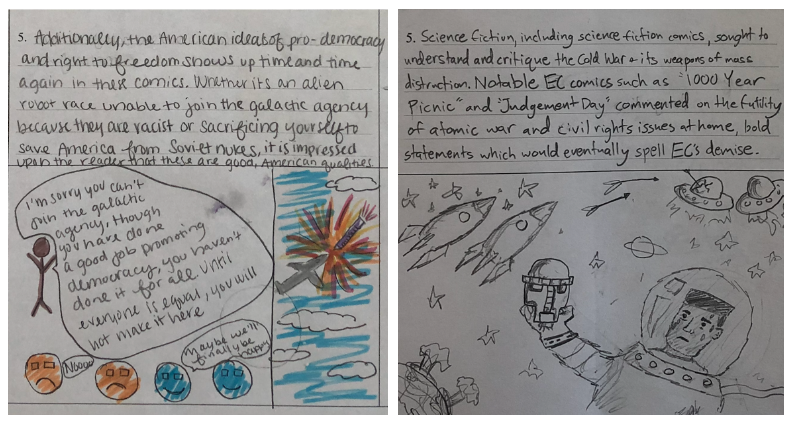 5. Additionally, the American ideal of pro-democracy
and right to freedom shows up time and time
again in these comics. Whether its an alien
robot race unable to join the galactic agency
because they are racist or sacrificing yourself to
save America from Soviet nukes, it is impressed
upon the reader that these are good, American qualities.
I'm sorry you can't
join the galactic
agency, though
you have done
a good job promoting
democracy, you haven't
done it for all. Until
everyone is equal, you will
not make it here
Noooo
maybe we'll
finally be
happy
5. Science fiction, including science fiction comics, sought to
understand and critique the Cold War & its weapons of mass
distruction. Notable EC comics such as "1000 Year
Picnic" and "Judgement Day" commented on the futility
of atomic war and civil rights issues at home, bold
statements which would eventually spell EC's demise.